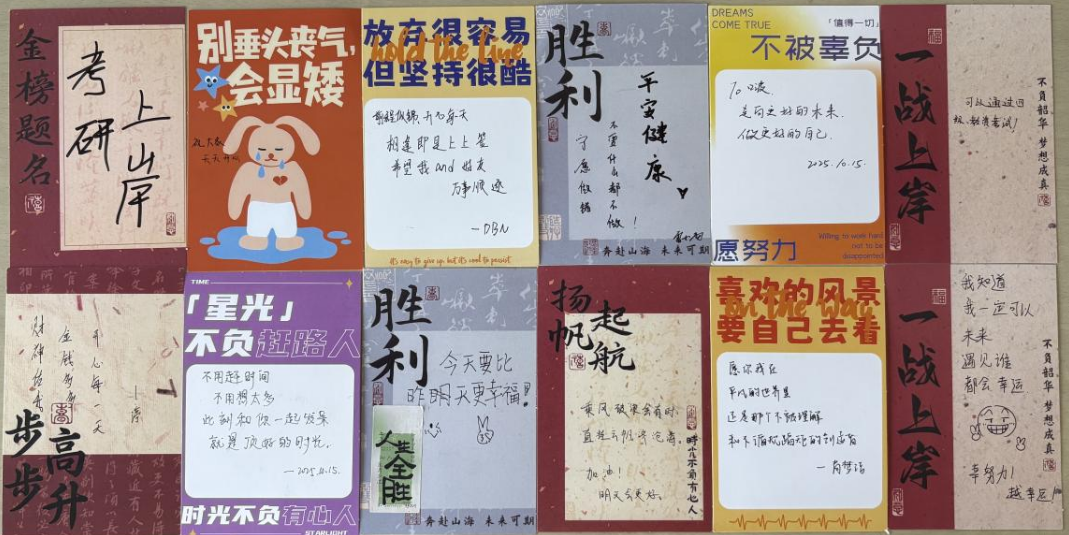 金榜题名
考研
上岸
别垂头丧气,
会显矮
天天开心
放弃很容易
hold the line
但坚持很酷
前程似锦 开心每天
相逢即是上上签
希望我and 好友
万事顺遂
—DBN
It's easy to give up, but it's cool to persist
胜利
平安健康
不要什么都不做!
宁愿做错
奔赴山海 未来可期
DREAMS
COME TRUE
「值得一切」
不被辜负
是向更好的未来.
做更好的自己.
2025.10.15.
愿努力
Willing to work hard
not to be
disappointed
一战上岸
可以通过四
级,教资考试!
不負韶华 梦想成真
开心每一天
金钱多多
上岸
步步高升
TIME
「星光」
不负赶路人
不用赶时间
不用想太多
此刻和你一起发呆
就是顶好的时光.
—2025.10.15.
时光不负有心人
STARLIGHT
胜利
今天要比
昨明天更幸福!
人生全胜
奔赴山海 未来可期
扬帆起航
乘风破浪会有时
直挂云帆济沧海.
加油!
明天会更好.
時光不负有心人
喜欢的风景
on the way
要自己去看
愿你我在
平凡的世界里
还是那个不被理解
和不循规蹈矩的创造者
一战上岸
我知道
我一定可以
未来
遇见谁
都会幸运
幸努力!
越幸运!
不負韶华 梦想成真